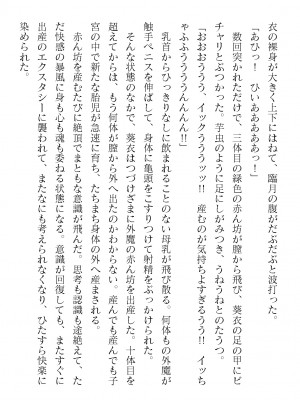 衣の裸身が大きく上下にはねて、臨月の腹がだぷだぷと波打った。
「あひっ！　ひぃああああぁっ！」
数回突かれただけで、三体目の緑色の赤ん坊が膣から飛び、葵衣の足の甲にビ
チャリとぶつかった。芋虫のように足にしがみつき、うねうねとのたうつ。
「おおおうううう、イックうううッッ！　産むのが気持ちよすぎるうう!!　イッち
ゃふうううんんんん!!」
乳首からひっきりなしに飲まれることのない母乳が飛び散る。何体もの外魔が
触手ペニスを伸ばして、身体に亀頭をこすりつけて射精をぶっかけられた。
そんな状態のなかで、葵衣はつづけざまに外魔の赤ん坊を出産した。十体目を
超えてからは、もう何体が膣から外へ出たのかわからない。産んでも産んでも子
宮の中で新たな胎児が急速に育ち、たちまち身体の外へ産まれる。
赤ん坊を産むたびに絶頂でまともな意識が飛んだ。思考も認識も途絶えて、た
だ快感の暴風に身も心も魂も委ねる状態になる。意識が回復しても、またすぐに
出産のエクスタシーに襲われて、またなにも考えられなくなり、ひたすら快楽に
染められた。